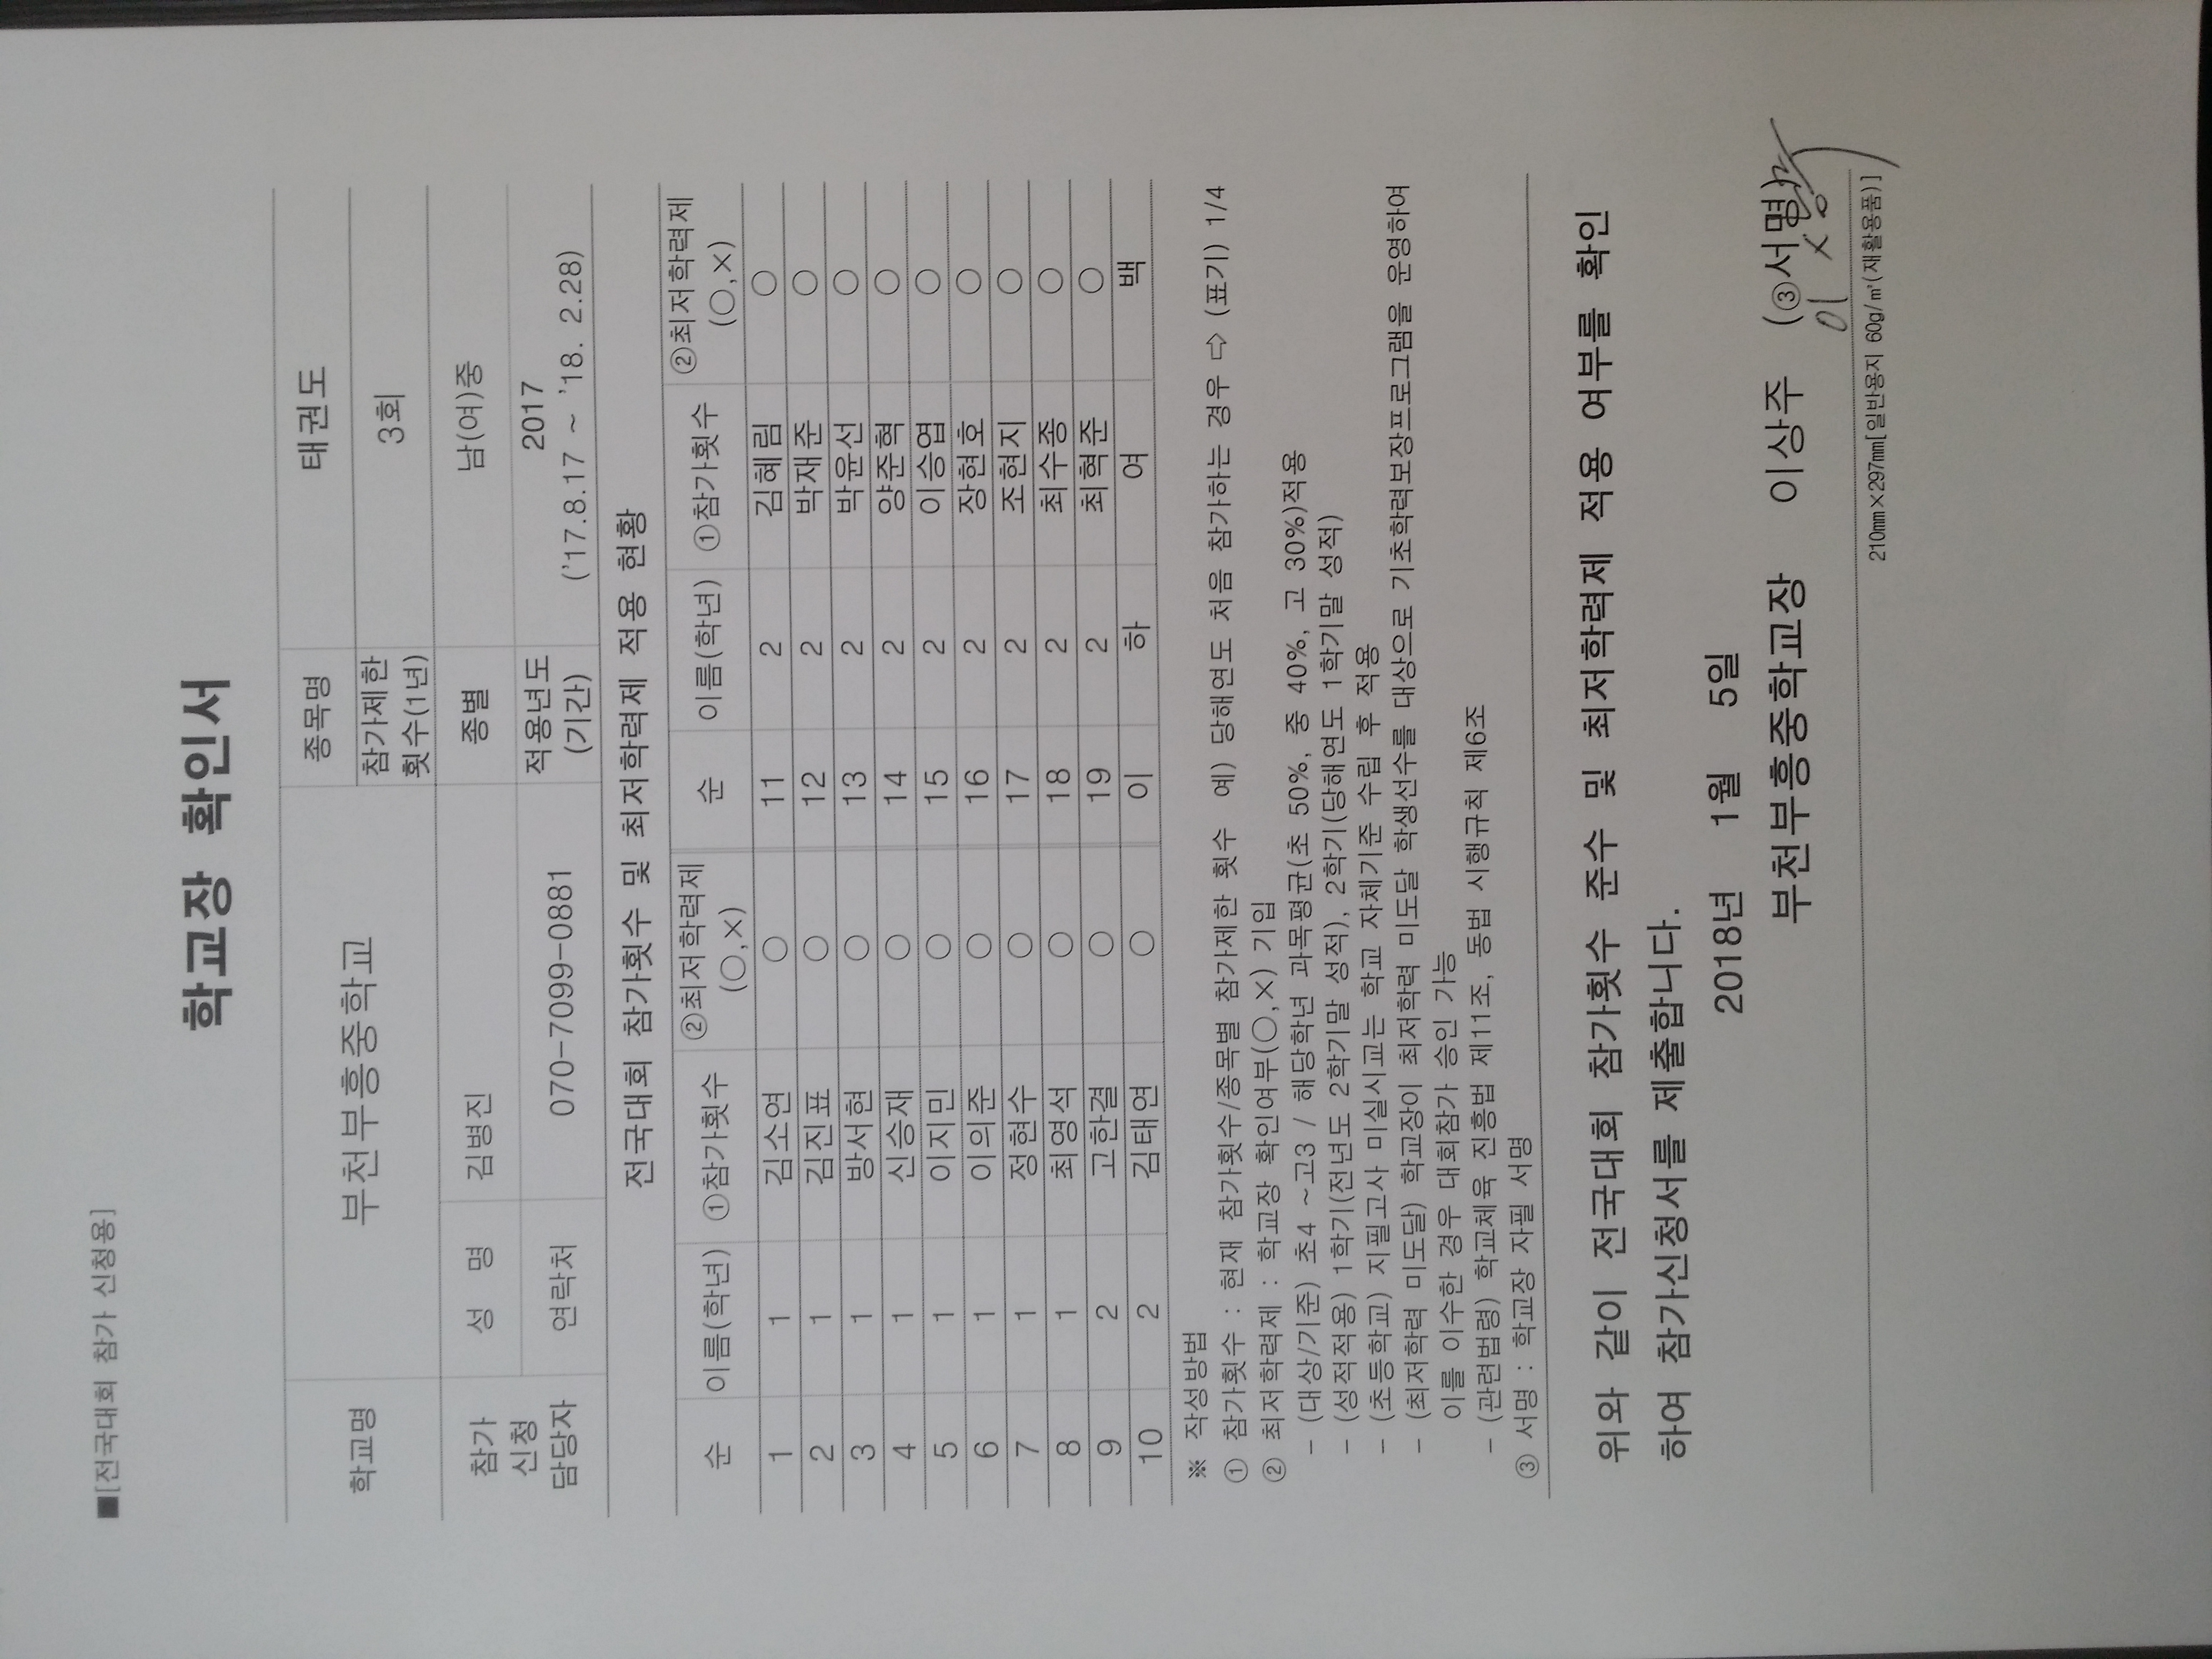 ■[전국대회 참가 신청용]
학교장 확인서
학교명 부천부흥중학교 종목명 태권도
참가제한 횟수(1년) 3회
참가 신청 담당자 성 명 김병진 종별 남(여)중
연락처 070-7099-0881 적용년도 (기간) 2017 ('17.8.17 ~ '18. 2.28)
전국대회 참가횟수 및 최저학력제 적용 현황
순 이름(학년) ①참가횟수 ②최저학력제 (○,×) 순 이름(학년) ①참가횟수 ②최저학력제 (○,×)
1 1 김소연 ○ 11 2 김혜림 ○
2 1 김진표 ○ 12 2 박재준 ○
3 1 방서현 ○ 13 2 박윤선 ○
4 1 신승재 ○ 14 2 양준혁 ○
5 1 이지민 ○ 15 2 이승엽 ○
6 1 이의준 ○ 16 2 장현호 ○
7 1 정현수 ○ 17 2 조현지 ○
8 1 최영석 ○ 18 2 최수종 ○
9 2 고한결 ○ 19 2 최혁준 ○
10 2 김태연 ○ 이 하 여 백
※ 작성방법
① 참가횟수 : 현재 참가횟수/종목별 참가제한 횟수 예) 당해연도 처음 참가하는 경우 ⇨ (표기) 1/4
② 최저학력제 : 학교장 확인여부(○,×) 기입
- (대상/기준) 초4 ~고3 / 해당학년 과목평균(초 50%, 중 40%, 고 30%)적용
- (성적적용) 1학기(전년도 2학기말 성적), 2학기(당해연도 1학기말 성적)
- (초등학교) 지필고사 미실시교는 학교 자체기준 수립 후 적용
- (최저학력 미도달) 학교장이 최저학력 미도달 학생선수를 대상으로 기초학력보장프로그램을 운영하여
이를 이수한 경우 대회참가 승인 가능
- (관련법령) 학교체육 진흥법 제11조, 동법 시행규칙 제6조
③ 서명 : 학교장 자필 서명
위와 같이 전국대회 참가횟수 준수 및 최저학력제 적용 여부를 확인
하여 참가신청서를 제출합니다.
2018년 1월 5일
부천부흥중학교장 이상주 (③서명)
210mm×297mm[일반용지 60g/㎡(재활용품)]